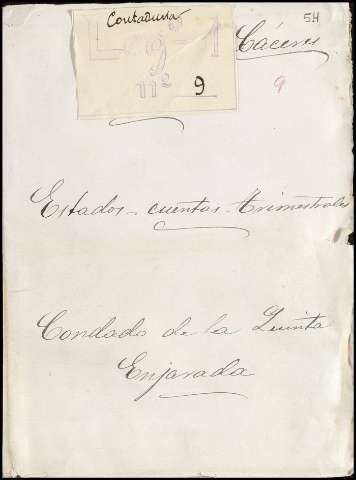 Contaduria
54
Leg. 1
Cáceres
nº 9
9
Estados-cuentas-trimestrales
Condado de la Quinta
Enjarada